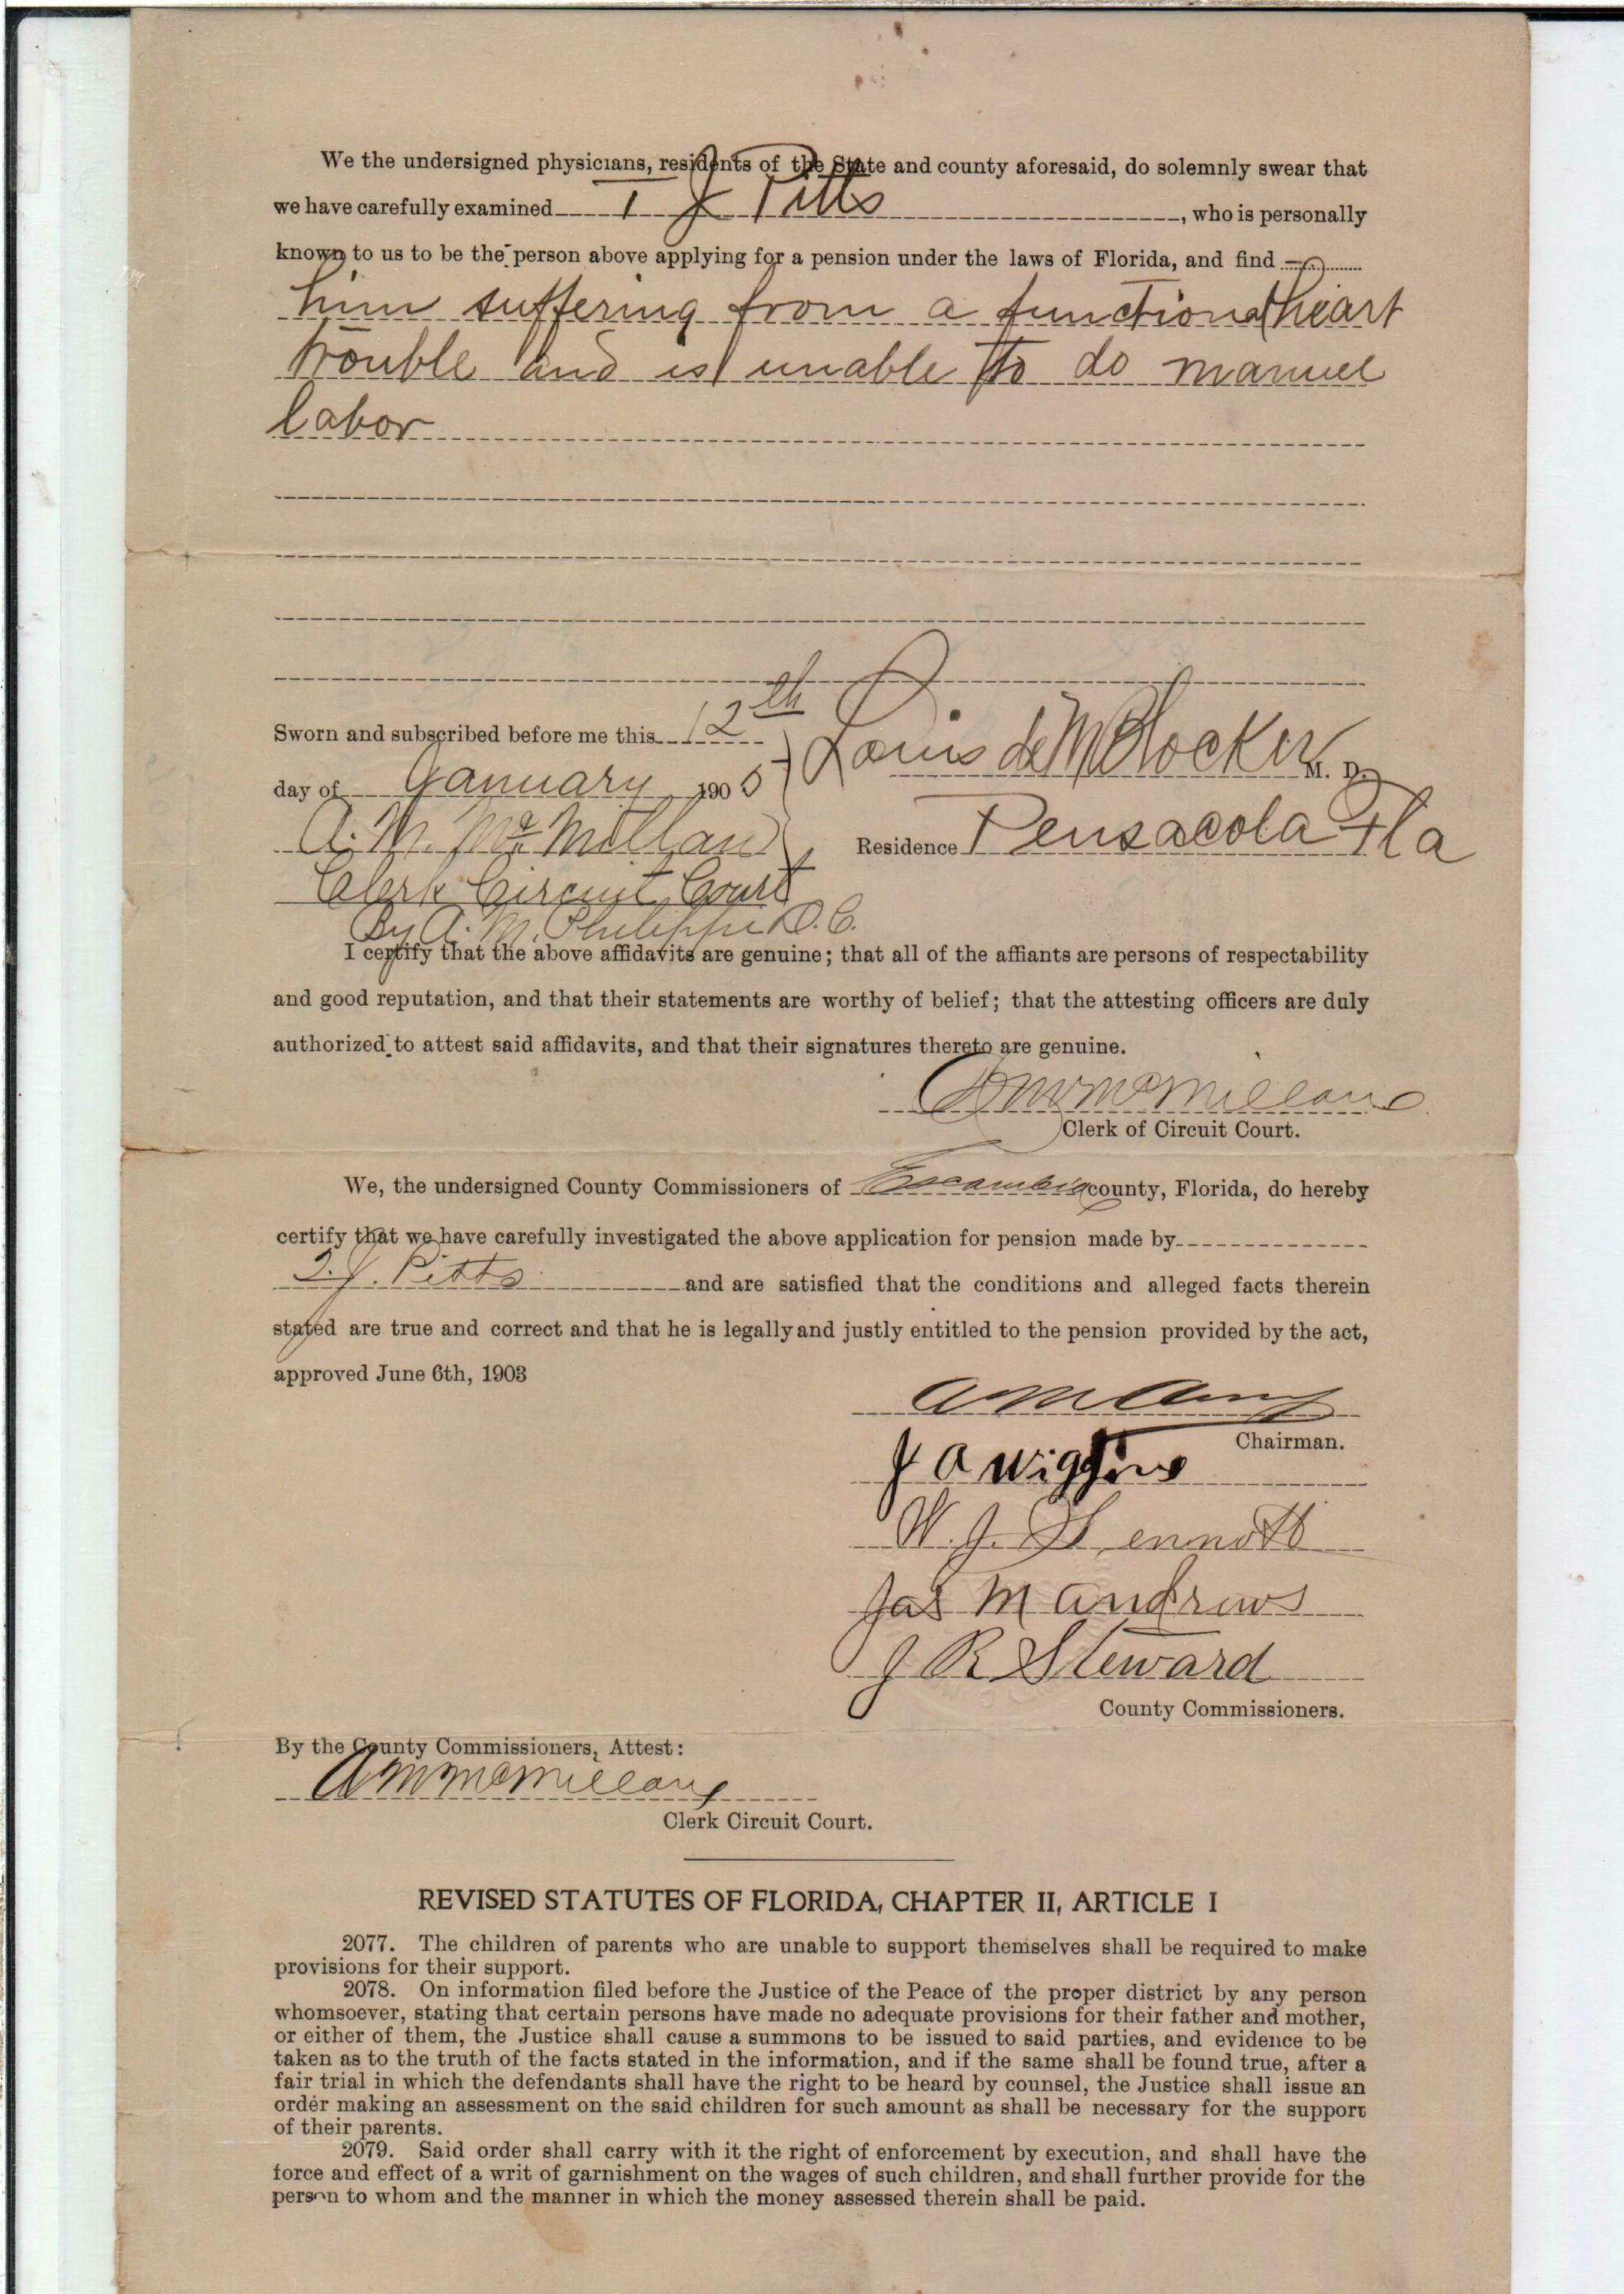 We the undersigned physicians, residents of the State and county aforesaid, do solemnly swear that
we have carefully examined T J Pitts, who is personally
known to us to be the person above applying for a pension under the laws of Florida, and find
him suffering from a functional heart
trouble and is unable to do manuel
labor
Sworn and subscribed before me this 12th
day of January 1905
Louis de M Blocker M. D.
A. M. McMillan
Residence Pensacola Fla
Clerk Circuit Court
By A. M. D. C.
I certify that the above affidavits are genuine; that all of the affiants are persons of respectability
and good reputation, and that their statements are worthy of belief; that the attesting officers are duly
authorized to attest said affidavits, and that their signatures thereto are genuine.
A M McMillan
Clerk of Circuit Court.
We, the undersigned County Commissioners of Escambia county, Florida, do hereby
certify that we have carefully investigated the above application for pension made by
T. J. Pitts and are satisfied that the conditions and alleged facts therein
stated are true and correct and that he is legally and justly entitled to the pension provided by the act,
approved June 6th, 1903
Chairman.
J A Wiggins
W. J.
Jas M Andrews
J R Steward
County Commissioners.
By the County Commissioners, Attest:
A M McMillan
Clerk Circuit Court.
REVISED STATUTES OF FLORIDA, CHAPTER II, ARTICLE I
2077. The children of parents who are unable to support themselves shall be required to make
provisions for their support.
2078. On information filed before the Justice of the Peace of the proper district by any person
whomsoever, stating that certain persons have made no adequate provisions for their father and mother,
or either of them, the Justice shall cause a summons to be issued to said parties, and evidence to be
taken as to the truth of the facts stated in the information, and if the same shall be found true, after a
fair trial in which the defendants shall have the right to be heard by counsel, the Justice shall issue an
order making an assessment on the said children for such amount as shall be necessary for the support
of their parents.
2079. Said order shall carry with it the right of enforcement by execution, and shall have the
force and effect of a writ of garnishment on the wages of such children, and shall further provide for the
person to whom and the manner in which the money assessed therein shall be paid.